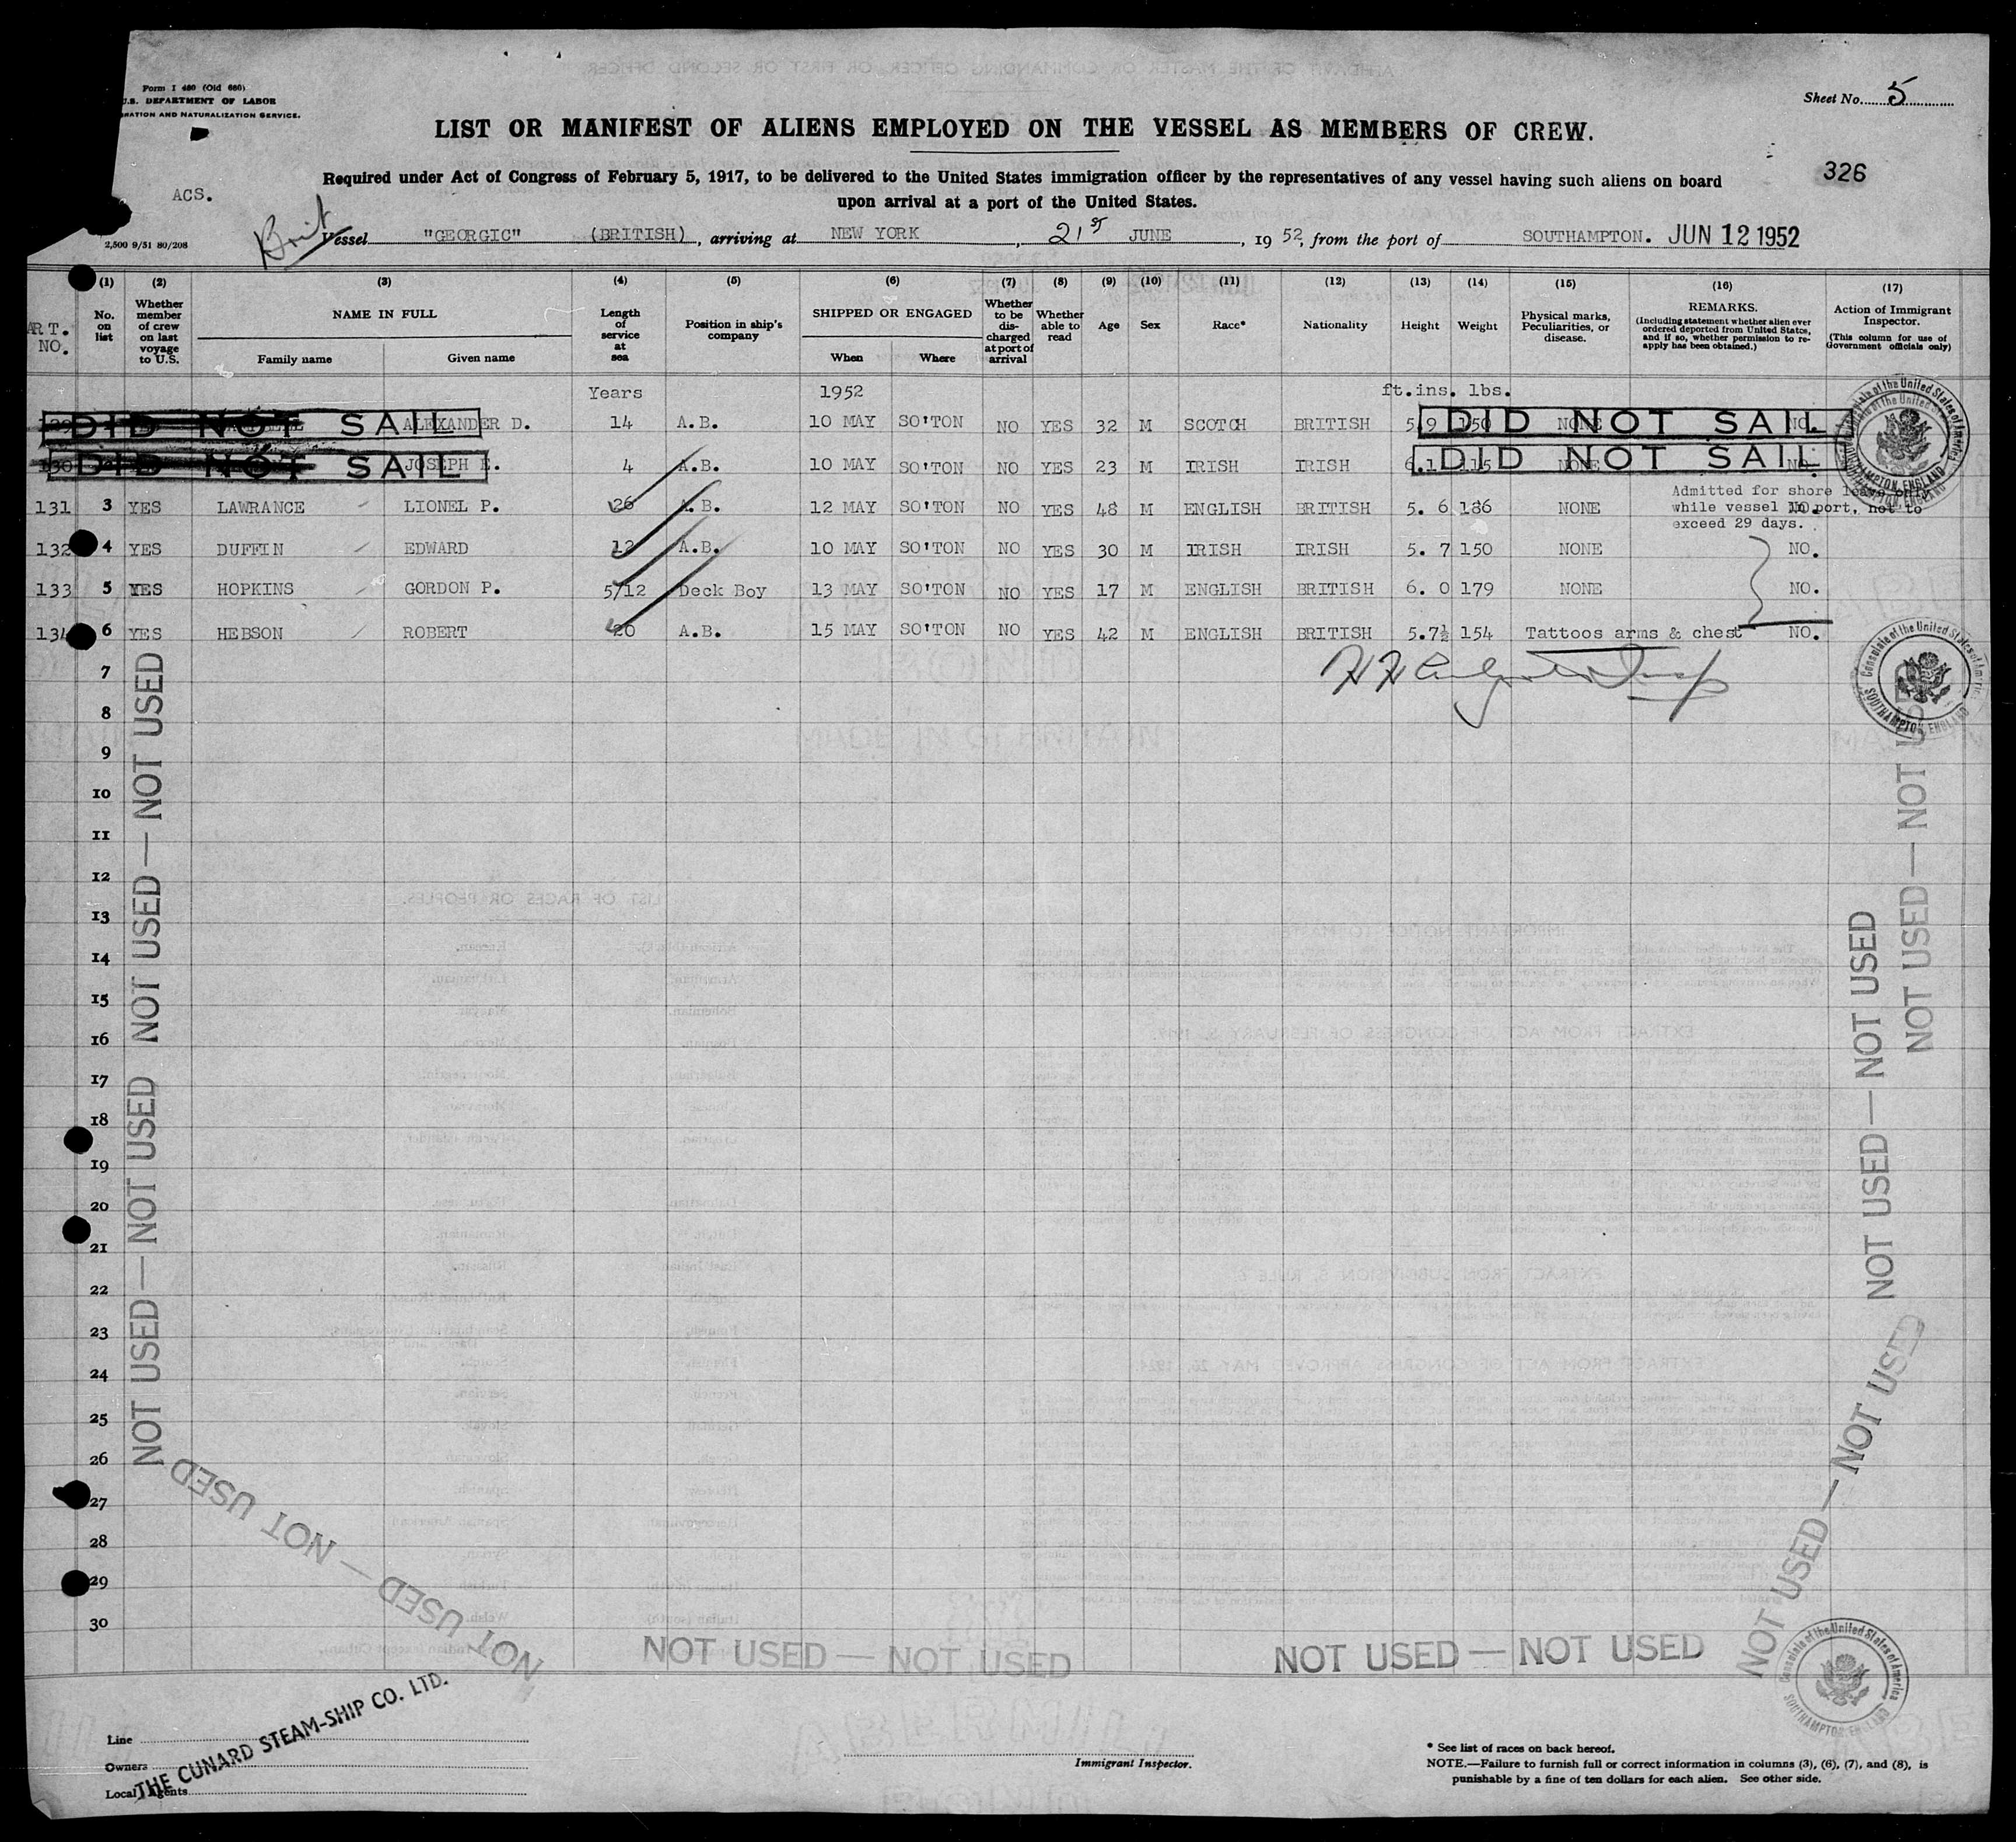 Form I 480 (Old 680)
U.S. DEPARTMENT OF LABOR
RATION AND NATURALIZATION SERVICE.
Sheet No. 5
LIST OR MANIFEST OF ALIENS EMPLOYED ON THE VESSEL AS MEMBERS OF CREW.
Required under Act of Congress of February 5, 1917, to be delivered to the United States immigration officer by the representatives of any vessel having such aliens on board
upon arrival at a port of the United States.
326
ACS.
Brit
2,500 9/51 80/208
Vessel "GEORGIC" (BRITISH), arriving at NEW YORK, 21st JUNE, 1952, from the port of SOUTHAMPTON. JUN 12 1952
ART. NO.
(1) No. on list
(2) Whether member of crew on last voyage to U.S.
(3) NAME IN FULL
Family name Given name
(4) Length of service at sea
(5) Position in ship's company
(6) SHIPPED OR ENGAGED
When Where
(7) Whether to be discharged at port of arrival
(8) Whether able to read
(9) Age
(10) Sex
(11) Race*
(12) Nationality
(13) Height
(14) Weight
(15) Physical marks, Peculiarities, or disease.
(16) REMARKS. (Including statement whether alien ever ordered deported from United States, and if so, whether permission to re-apply has been obtained.)
(17) Action of Immigrant Inspector. (This column for use of Government officials only)
Years 1952 ft.ins. lbs.
DID NOT SAIL ALEXANDER D. 14 A.B. 10 MAY SO'TON NO YES 32 M SCOTCH BRITISH 5.9 150 NONE NO. DID NOT SAIL
130 DID NOT SAIL JOSEPH E. 4 A.B. 10 MAY SO'TON NO YES 23 M IRISH IRISH NONE NO. DID NOT SAIL
131 3 YES LAWRANCE LIONEL P. 26 A.B. 12 MAY SO'TON NO YES 48 M ENGLISH BRITISH 5. 6 186 NONE NO.
Admitted for shore leave only
while vessel in port, not to
exceed 29 days.
132 4 YES DUFFIN EDWARD 12 A.B. 10 MAY SO'TON NO YES 30 M IRISH IRISH 5. 7 150 NONE NO.
133 5 YES HOPKINS GORDON P. 5/12 Deck Boy 13 MAY SO'TON NO YES 17 M ENGLISH BRITISH 6. 0 179 NONE NO.
134 6 YES HEBSON ROBERT 20 A.B. 15 MAY SO'TON NO YES 42 M ENGLISH BRITISH 5.7½ 154 Tattoos arms & chest NO.
7
8
9
10
11
12
13
14
15
16
17
18
19
20
21
22
23
24
25
26
27
28
29
30
NOT USED — NOT USED — NOT USED
NOT USED — NOT USED — NOT USED
NOT USED — NOT USED
NOT USED — NOT USED
NOT USED — NOT USED
NOT USED — NOT USED
NOT USED — NOT USED — NOT USED
NOT USED — NOT USED
Consulate of the United States of America
SOUTHAMPTON, ENGLAND
Consulate of the United States of America
SOUTHAMPTON, ENGLAND
Consulate of the United States of America
SOUTHAMPTON, ENGLAND
Line
Owners
Local Agents
THE CUNARD STEAM-SHIP CO. LTD.
Immigrant Inspector.
* See list of races on back hereof.
NOTE.—Failure to furnish full or correct information in columns (3), (6), (7), and (8), is
punishable by a fine of ten dollars for each alien. See other side.